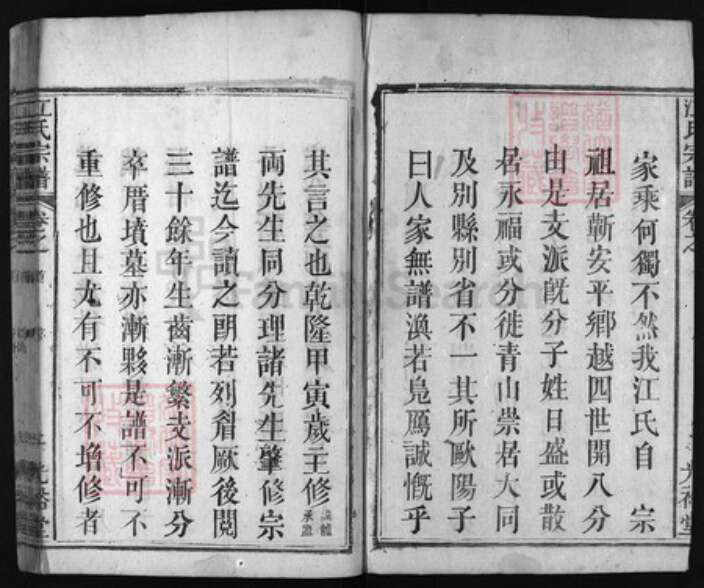 家乘何獨不然我江氏自　宗
祖居蘄安平鄉越四世開八分
由是支派旣分子姓日盛或散
居永福或分徙青山崇居大同
及別縣別省不一其所歐陽子
曰人家無譜渙若鳧鴈誠慨乎
其言之也乾隆甲寅歲主修
両先生同分理諸先生肇修宗
譜迄今讀之朗若列眉厥後閱
三十餘年生齒漸繁支派漸分
卒厝墳墓亦漸夥是譜不可不
重修也且尤有不可不增修者
江氏宗譜
卷之
光裕堂
江氏宗譜
卷之一
光裕堂
FamilySearch